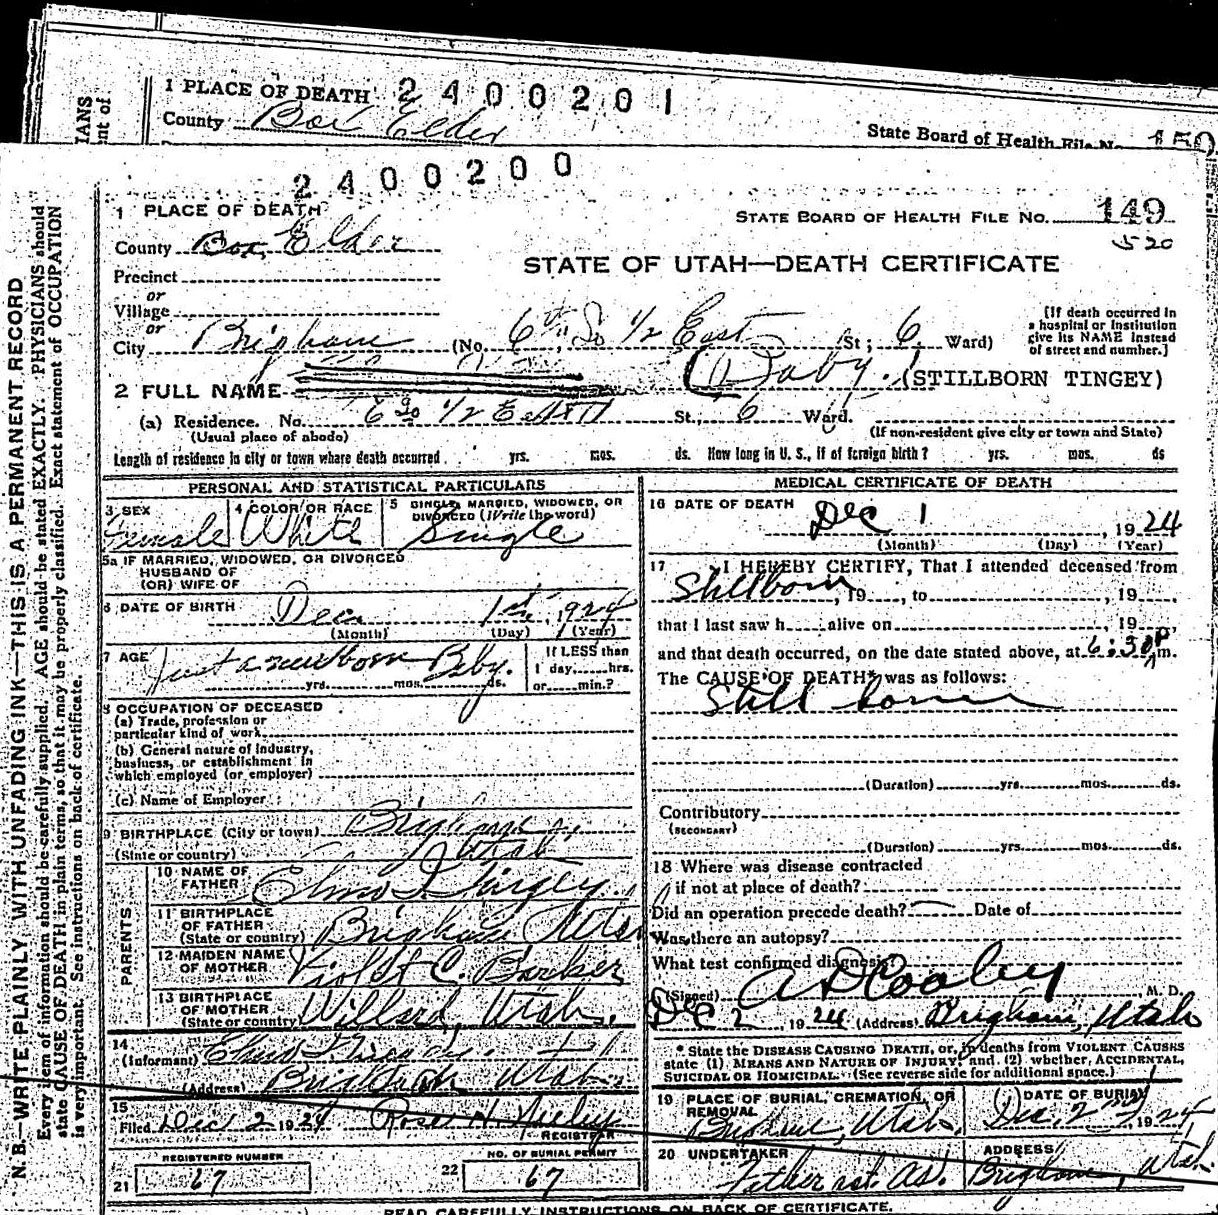 1 PLACE OF DEATH 2400201
County Box Elder
State Board of Health File No. 150
2400200
1 PLACE OF DEATH
STATE BOARD OF HEALTH FILE NO. 149
County Box Elder
520
Precinct
STATE OF UTAH—DEATH CERTIFICATE
or
Village
or
City Brigham (No. 6th So 1/2 East St; 6 Ward)
[If death occurred in
a hospital or institution
give its NAME instead
of street and number.]
2 FULL NAME (Baby.) (STILLBORN TINGEY)
(a) Residence. No. 6 So 1/2 East St., 6 Ward.
(Usual place of abode) (If non-resident give city or town and State)
Length of residence in city or town where death occurred yrs. mos. ds. How long in U. S., if of foreign birth? yrs. mos. ds
PERSONAL AND STATISTICAL PARTICULARS
3 SEX Female
4 COLOR OR RACE White
5 SINGLE, MARRIED, WIDOWED, OR
DIVORCED (Write the word) Single
5a IF MARRIED, WIDOWED, OR DIVORCED
HUSBAND OF
(OR) WIFE OF
6 DATE OF BIRTH Dec 1st, 1924
(Month) (Day) (Year)
7 AGE Just a newborn Baby.
yrs. mos. ds.
If LESS than
1 day, hrs.
or min.?
8 OCCUPATION OF DECEASED
(a) Trade, profession or
particular kind of work
(b) General nature of industry,
business, or establishment in
which employed (or employer)
(c) Name of Employer
9 BIRTHPLACE (City or town) Brigham,
(State or country) Utah
PARENTS
10 NAME OF
FATHER Elmo J. Tingey
11 BIRTHPLACE
OF FATHER
(State or country) Brigham Utah
12 MAIDEN NAME
OF MOTHER Violet C. Barker
13 BIRTHPLACE
OF MOTHER
(State or country) Willard, Utah.
14
(Informant) Elmo J. Tingey
(Address) Brigham Utah.
15
Filed Dec 2 1924 Rose H.
REGISTRAR
REGISTERED NUMBER
21 67
NO. OF BURIAL PERMIT
22 67
MEDICAL CERTIFICATE OF DEATH
16 DATE OF DEATH
Dec 1, 1924
(Month) (Day) (Year)
17 I HEREBY CERTIFY, That I attended deceased from
Stillborn, 19, to, 19
that I last saw h alive on, 19,
and that death occurred, on the date stated above, at 6:30 P m.
The CAUSE OF DEATH* was as follows:
Still born
(Duration) yrs. mos. ds.
Contributory
(SECONDARY)
(Duration) yrs. mos. ds.
18 Where was disease contracted
if not at place of death?
Did an operation precede death? Date of
Was there an autopsy?
What test confirmed diagnosis?
(Signed) A D Cooley M. D.
Dec 2 1924 (Address) Brigham, Utah
* State the DISEASE CAUSING DEATH, or, in deaths from VIOLENT CAUSES
state (1) MEANS AND NATURE OF INJURY; and (2) whether, ACCIDENTAL,
SUICIDAL OR HOMICIDAL. (See reverse side for additional space.)
19 PLACE OF BURIAL, CREMATION, OR
REMOVAL Brigham, Utah
DATE OF BURIAL
Dec. 2nd, 1924
20 UNDERTAKER
Father act. as.
ADDRESS
Brigham, Utah
READ CAREFULLY INSTRUCTIONS ON BACK OF CERTIFICATE.
N. B.—WRITE PLAINLY WITH UNFADING INK—THIS IS A PERMANENT RECORD
Every item of information should be carefully supplied. AGE should be stated EXACTLY. PHYSICIANS should
state CAUSE OF DEATH in plain terms, so that it may be properly classified. Exact statement of OCCUPATION
is very important. See instructions on back of certificate.